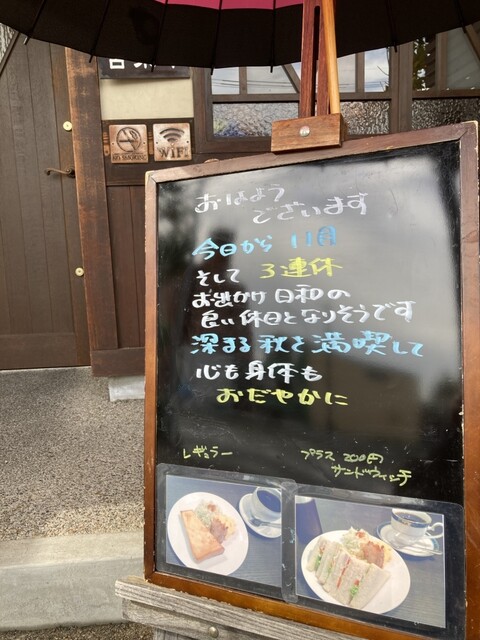 NO SMOKING
WiFi
おはよう
ございます
今日から 11月
そして 3連休
お出かけ日和の
良い休日となりそうです
深まる秋を満喫して
心も身体も
おだやかに
レギュラー
プラス 200円
サンドウィッチ